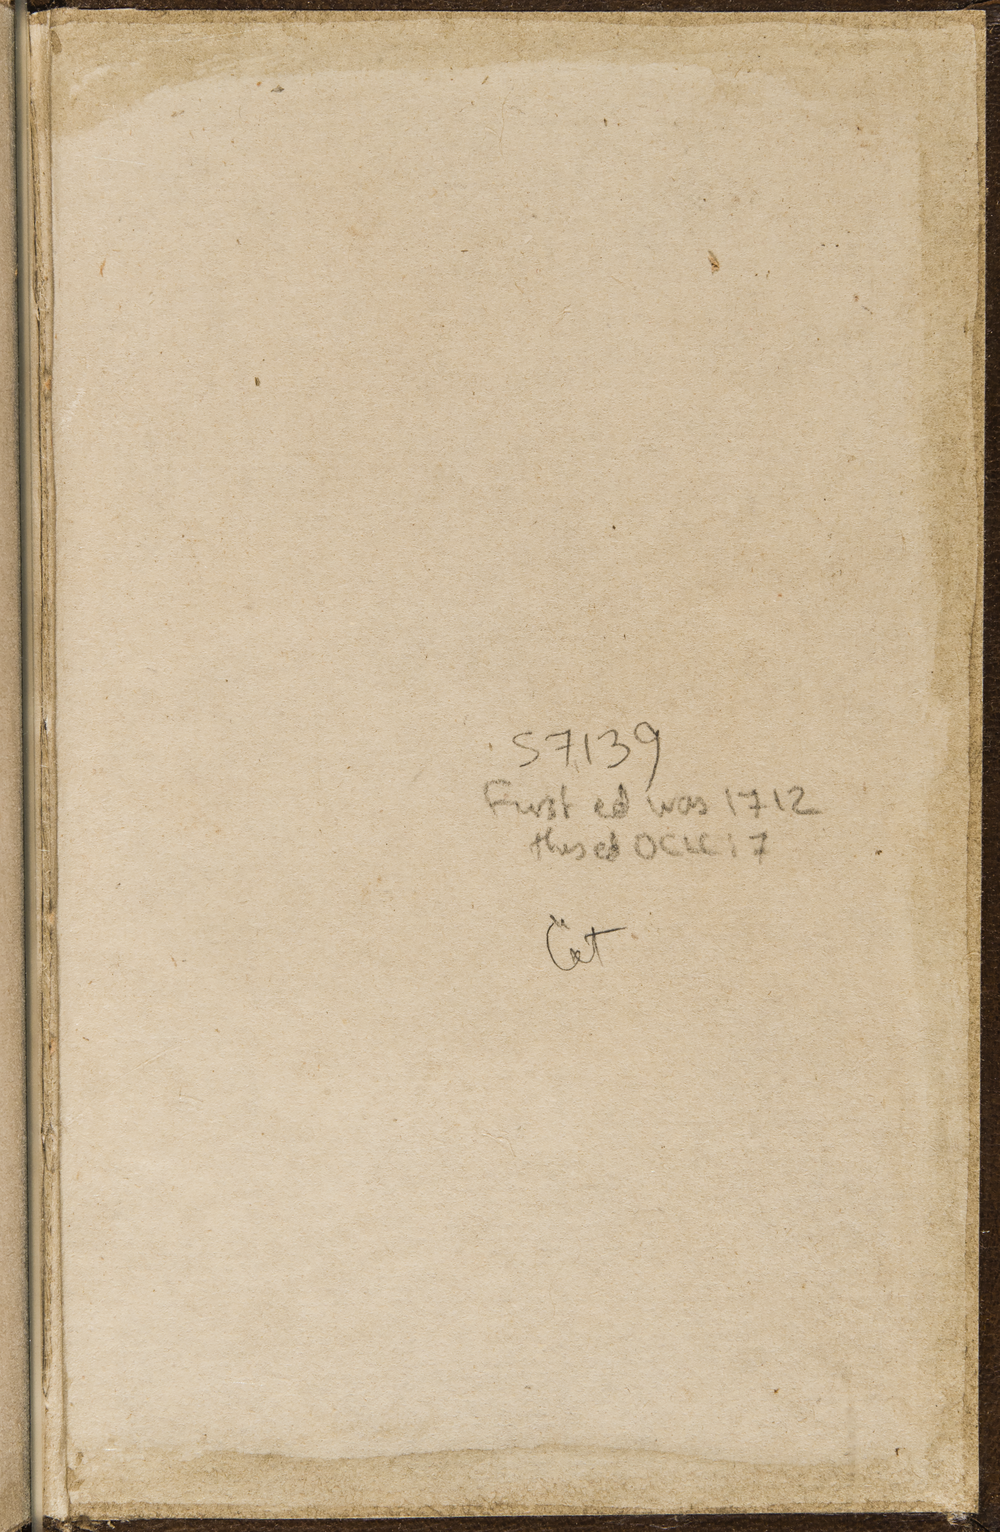 S7139
First ed was 1712
this ed OCLC: 7